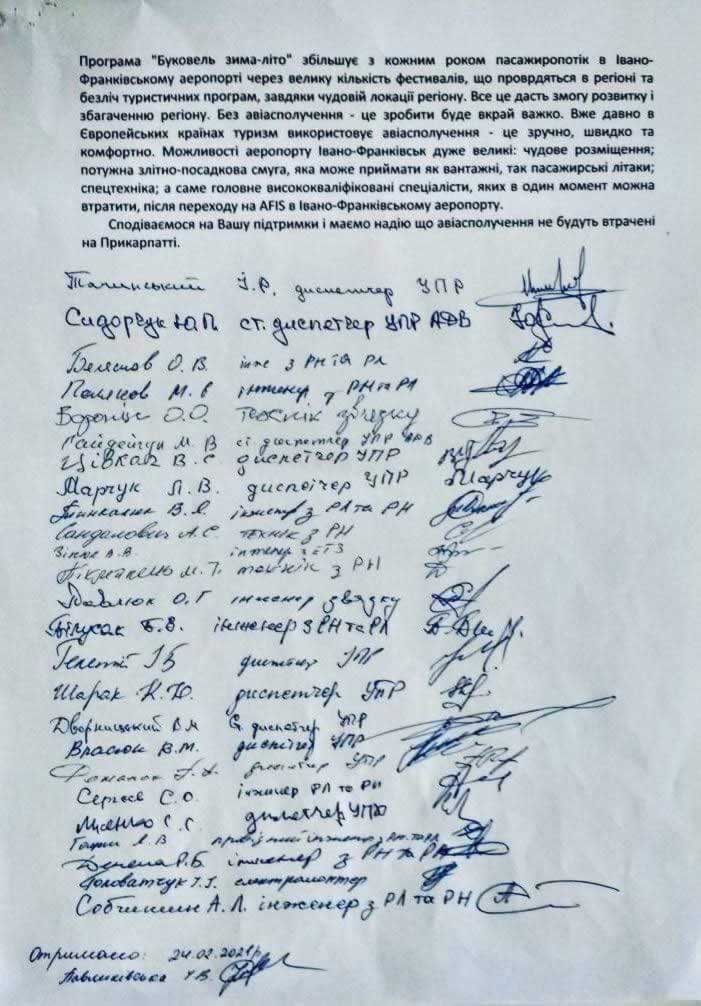 Програма "Буковель зима-літо" збільшує з кожним роком пасажиропотік в Івано-
Франківському аеропорті через велику кількість фестивалів, що проврдяться в регіоні та
безліч туристичних програм, завдяки чудовій локації регіону. Все це дасть змогу розвитку і
збагаченню регіону. Без авіасполучення - це зробити буде вкрай важко. Вже давно в
Європейських країнах туризм використовує авіасполучення - це зручно, швидко та
комфортно. Можливості аеропорту Івано-Франківськ дуже великі: чудове розміщення;
потужна злітно-посадкова смуга, яка може приймати як вантажні, так пасажирські літаки;
спецтехніка; а саме головне висококваліфіковані спеціалісти, яких в один момент можна
втратити, після переходу на AFIS в Івано-Франківському аеропорту.
Сподіваємося на Вашу підтримки і маємо надію що авіасполучення не будуть втрачені
на Прикарпатті.
диспетчер УПР
Сидорчук Ю.П. ст. диспетчер УПР АДВ
О. В. інж з РН та РЛ
Поляков М. інженер з РН та РЛ
О.О. технік зв'язку
М. В ст. диспетчер УПР АДВ
Цівкач В.С диспетчер УПР
Марчук Л. В. диспетчер УПР Марчук
В. Я. інженер з РЛ та РН
Сандалович А.С. технік з РН
інженер з ЕТЗ
М. технік з РН
Павлюк О.Г інженер звязку
Білусак Б.В. інженер з РН та РЛ
диспетчер УПР
Шарак Н.Ю. диспетчер УПР
Дворницький В.М Ст. диспетчер УПР
Власюк В.М. диспетчер УПР
диспетчер УПР
Сергєєв С.О. інженер РЛ та РН
Лисенко С.С. диспетчер УПР
Л.В інженер з РН та РЛ
Р.Б. інженер з РН та РЛ
Головатчук електромонтер
Собчишин А.Л. інженер з РЛ та РН
Отримано: 24.02.2021р